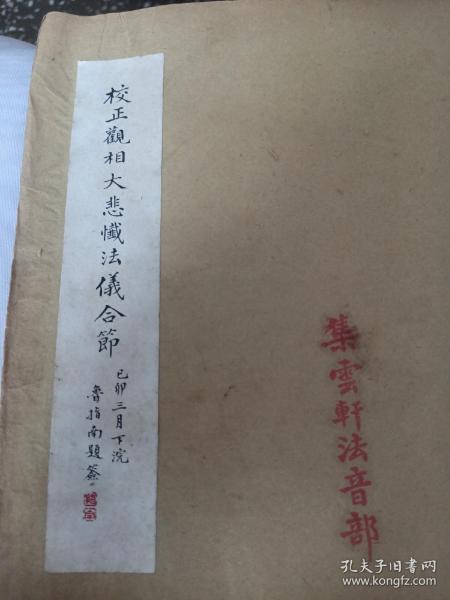 校正觀相大悲懺法儀合節
己卯三月下浣
魯指南題簽
集雲軒法音部
孔夫子旧书网
www.kongfz.com